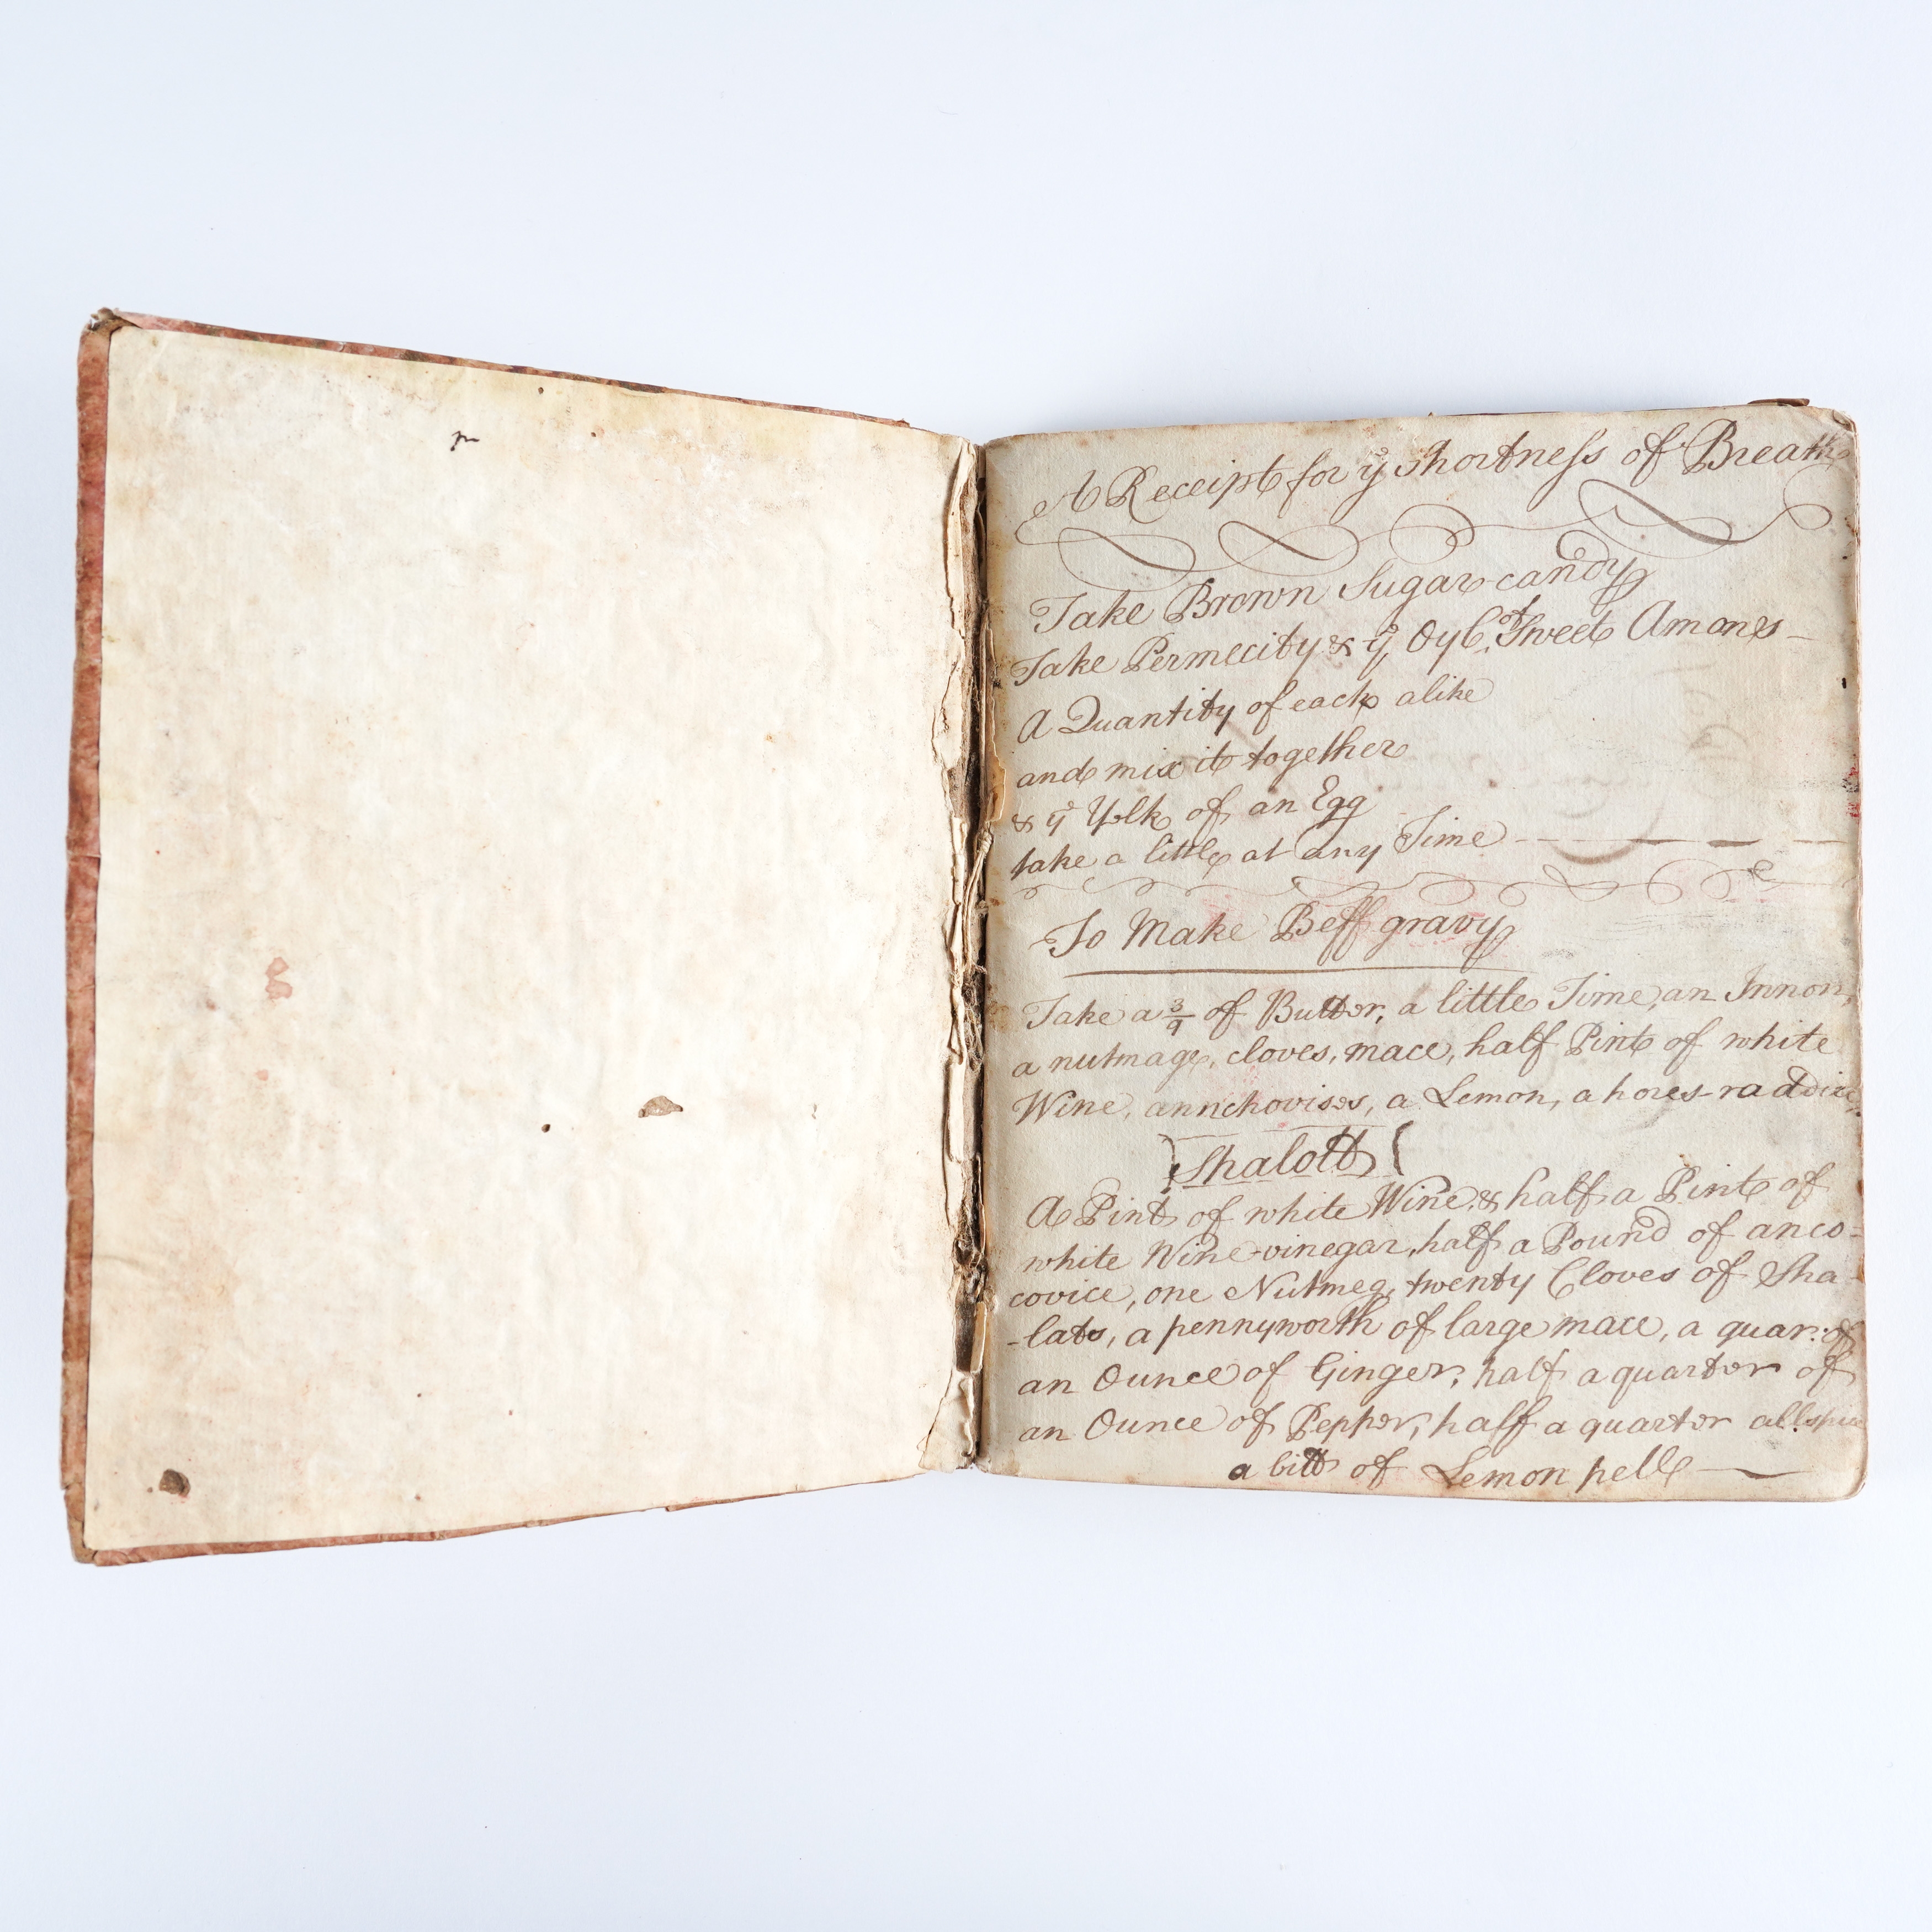 A Receipt for ye shortness of Breath
Take Brown Sugar-candy
Take Permecity & ye Oyl of Sweet Amones
A Quantity of each alike
and mix it together
& ye Yolk of an Egg
take a little at any Time
To Make Beff gravy
Take a 3/9 of Butter, a little Time, an Innon,
a nutmage, cloves, mace, half Pint of white
Wine, annchovises, a Lemon, a hores-raddi
Shalott
A Pint of white Wine, & half a Pint of
white Wine-vinegar, half a Pound of anco=
covice, one Nutmeg, twenty Cloves of Sha-
-lats, a pennyworth of large mace, a quar: of
an Ounce of Ginger, half a quarter of
an Ounce of Pepper, half a quarter allspice
a bitt of Lemon pell